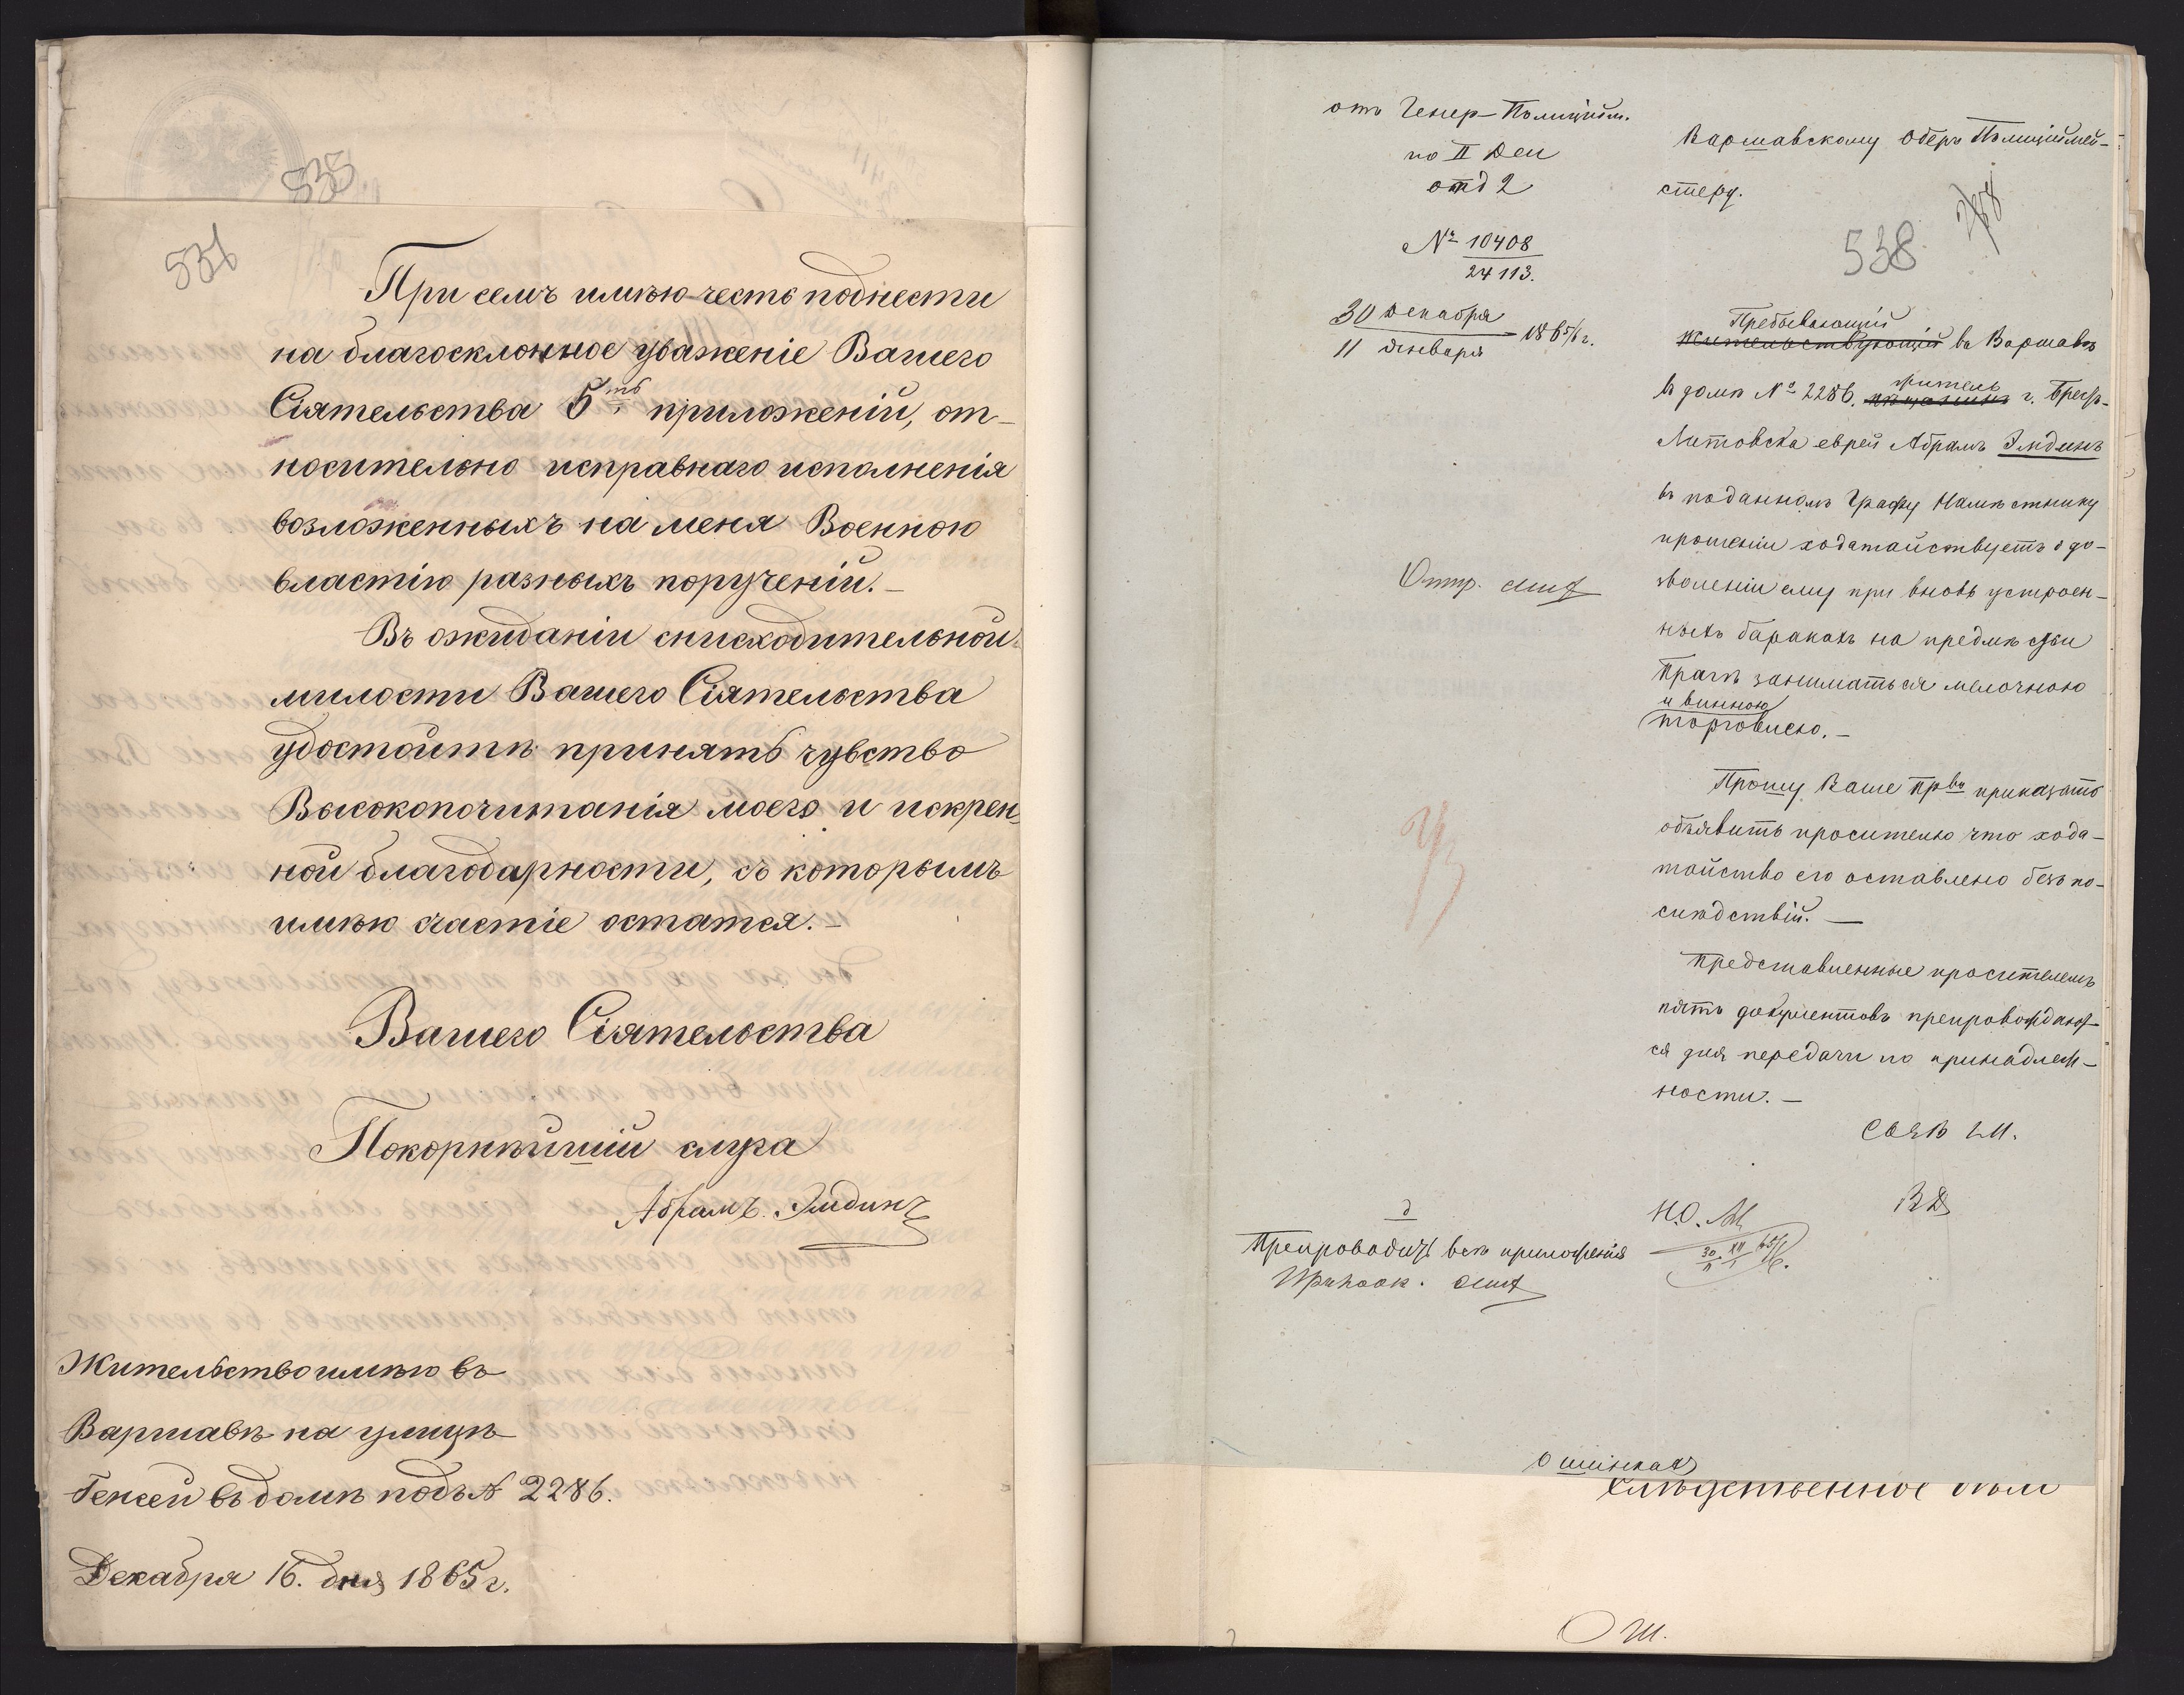 535
531
При семъ имѣю честь поднести
на благосклонное уваженіе Вашего
Сіятельства 5ть приложеній, от-
носительно исправнаго исполненія
возложенныхъ на меня Военною
властію разныхъ порученій.-
Въ ожиданіи снисходительной
милости Вашего Сіятельства
удостойтѣ принять чувство
Высокопочитанія моего и искрен-
ной благодарности, съ которымъ
имѣю счастіе остатся.-
Вашего Сіятельства
Покорнѣйшій слуга
Абрамъ Эмдинъ
Жительство имѣю въ
Варшавѣ на улицѣ
Генсей въ домѣ подъ № 2286.
Декабря 16. дня 1865 г.
отъ Генер-Полиційм.
по II Деи
отд 2
№ 10408
24113.
30 Декабря
11 Января 1865/6 г.
Отпр.
Препроводить всѣ приложенія
Варшавскому Оберъ Полиціймей-
стеру.
538
Пребывающій
жительствующій въ Варшавѣ
житель
въ домѣ № 2286. мѣщанинъ г. Брестъ-
Литовска еврей Абрамъ Эмдинъ
въ поданномъ Графу Намѣстнику
прошеніи ходатайствуетъ о до-
зволеніи ему при вновь устроен-
ныхъ баракахъ на предмѣстьи
Прагѣ заниматься мелочною
и винною
торговлею.-
Прошу Ваше Прво приказать
объявить просителю что хода-
тайство его оставлено безъ по-
слѣдствій.-
Представленные просителемъ
пять документовъ препровождают-
ся для передачи по принадлеж-
ности.-
Н.О.
30 XII 65/6
О шинкахъ
Слѣдственное дѣло